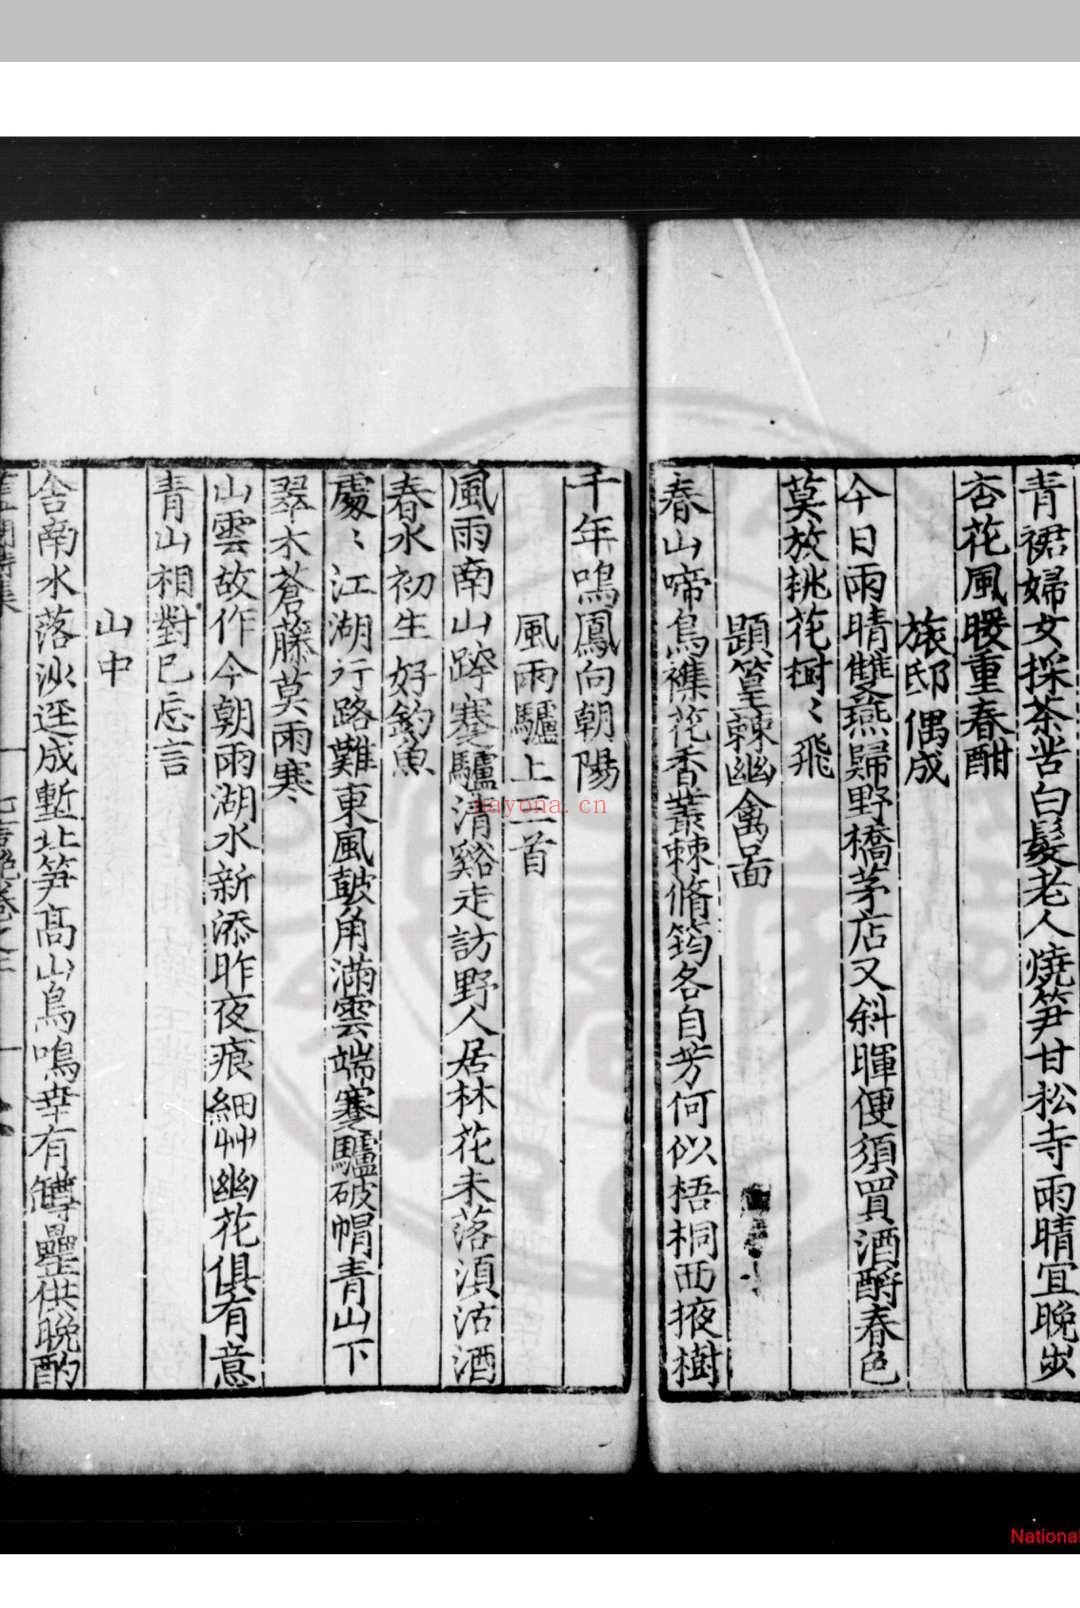 青裙婦女採茶苦白髮老人燒笋甘松寺雨晴宜晚出
杏花風暖重春酣
旅邸偶成
今日雨晴雙燕歸野橋茅店又斜暉便須買酒酹春色
莫放桃花樹〻飛
題篁棘幽禽啚
春山啼鳥襍花香叢棘脩筠各自芳何似梧桐西掖樹
千年鳴鳳向朝陽
風雨驢上三首
風雨南山踤蹇驢清谿走訪野人居林花未落湏沽酒
春水初生好釣魚
處〻江湖行路難東風皷角滿雲端蹇驢破帽青山下
翠木蒼藤莫雨寒
山雲故作今朝雨湖水新添昨夜痕細艸幽花俱有意
青山相對已忘言
山中
舍南水落沙逕成塹北笋高山鳥鳴幸有罇罍供晚酌
nayona.cn
National